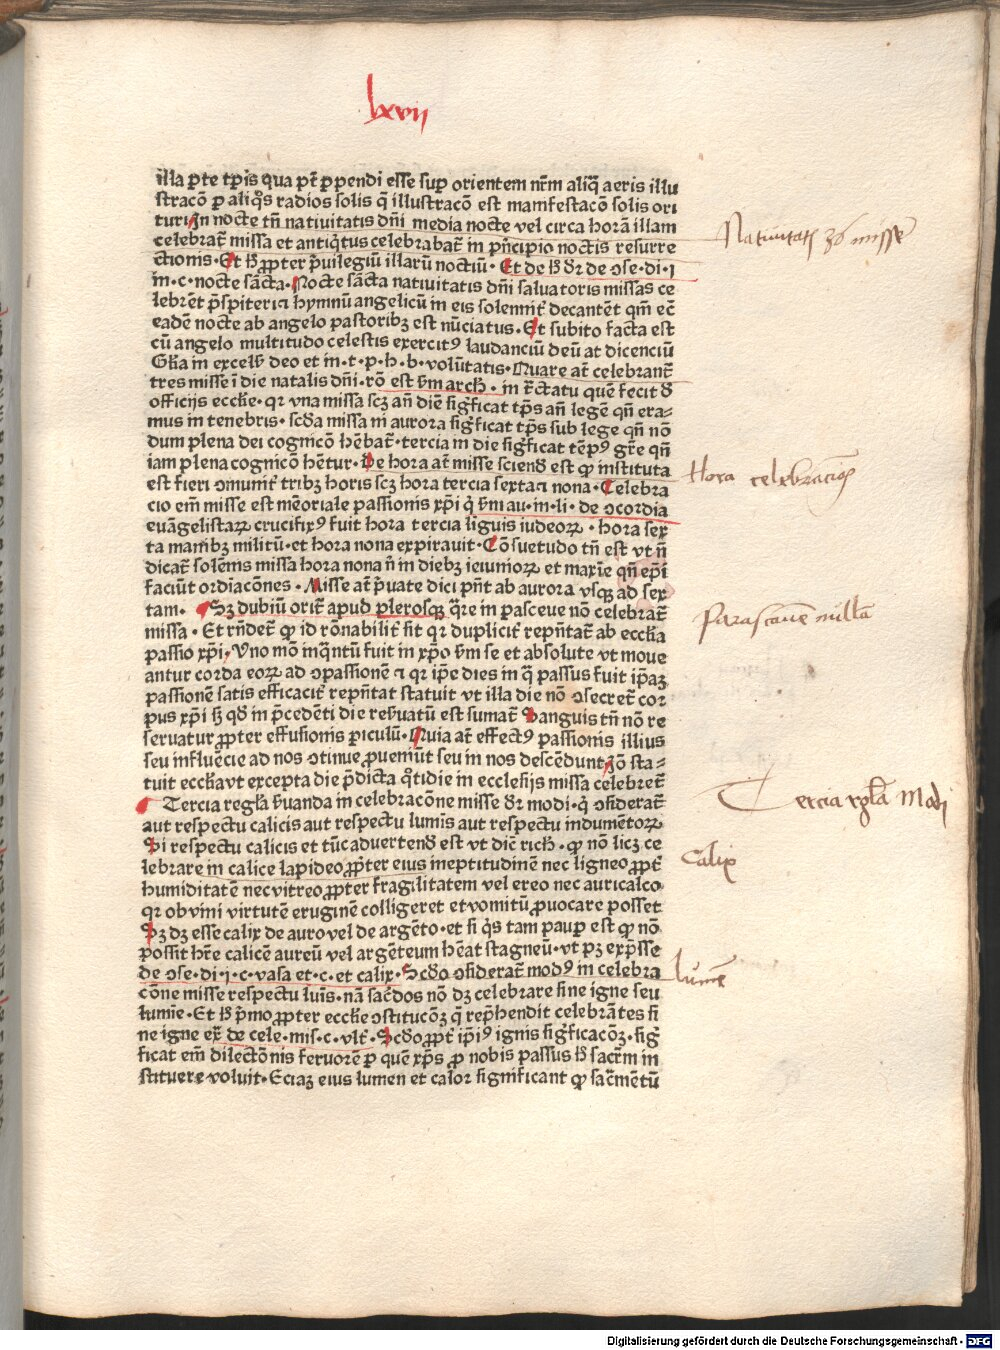 lxvii
illa ꝑte tꝑis qua pt̄ ꝑpendi esse suꝑ orientem nr̄m aliq̄ aeris illu
stracō ꝑ aliq̊s radios solis q̄ illustracō est manifestacōn solis ori
turi. In nocte tn̄ nativitatis dn̄i media nocte vel circa horā illam
celebrat̄ missa et antiq̇tus celebrabat̄ in pn̄cipio noctis resurre
ctionis. Et ꝓpter pͥuilegiū illarū noctiū. Et de dr̄ de ↄse. di. j
in. c. nocte sācta. Nocte sācta nativitatis dn̄i saluatoris missas ce
lebrēt pr̄spiteri ⁊ hymnū angelicū in eis solennit̄ decantēt qm̄ ec̄
eadē nocte ab angelo pastoribꝫ est nūciatus. Et subito facta est
cū angelo multitudo celestis exercitꝰ laudanciū deū at dicenciū
Glīa in excelsꝭ deo et in. t. p. h. b. volūtatis. Quare at̄ celebrant̄
tres misse ī die natalis dn̄i. rō est ẜm arch. in tr̄ctatu quē fecit d̄
officijs eccl̄ie. qr vna missa scꝫ an̄ diē sigͥficat tp̄s an̄ legē qn̄ era⸗
mus in tenebris. scd̄a missa in aurora sigͥficat tp̄s sub lege qn̄ nō
dum plena dei cognicō hēbat̄. tercia in die sigͥficat tēpꝰ gr̄e qn̄
iam plena cognicō hēt̄ur. De hora at̄ misse sciend̄ est ꝙ instituta
est fieri ↄmunit̄ tribꝫ horis scꝫ hora tercia sexta ⁊ nona. Celebra
cio em̄ misse est mēoriale passionis xp̄i q̇ ẜm au. in. li. de ↄcordia
euāgelistaꝝ crucifixꝰ fuit hora tercia liguis iudeoꝝ. hora sex
ta manibꝫ militū. et hora nona expirauit. Cōsuetudo tn̄ est vt n̄
dicat̄ solēnis missa hora nona n̄ in diebꝫ ieiunioꝝ et maxīe qn̄ epī
faciūt ordiacōnes. Misse at̄ pͥuate dici pn̄t ab aurora vsqꝫ ad sex
tam. Sꝫ dubiū orit̄ apud plerosqꝫ q̄re in pasceue nō celebrat̄
missa. Et rn̄det̄ ꝙ id rōnabilit̄ fit qr duplicit̄ repn̄tat̄ ab eccl̄ia
passio xp̄i. Vno mō inqͣntū fuit in xp̄o ẜm se et absolute vt moue
antur corda eoꝝ ad ↄpassionē ⁊ qr ip̄e dies in q̄ passus fuit ip̄aꝫ
passionē satis efficacit̄ repn̄tat statuit vt illa die nō ↄsecret̄ cor
pus xp̄i sꝫ qd̄ in pͥcedēti die reẜuatū est sumat̄ Sanguis tn̄ nō re
seruatur ꝓpter effusionis ꝑiculū. Quia at̄ effectꝰ passionis illius
seu influēcie ad nos ↄtinue ꝓueniūt seu in nos descēdunt. Iō sta⸗
tuit eccl̄ia vt excepta die pͥdicta qͦtidie in ecclesijs missa celebret̄
Tercia regl̄a ẜuanda in celebracōne misse dr̄ modi. q̇ ↄsiderat̄
aut respectu calicis aut respectu lumīs aut respectu indumētoꝝ
Si respectu calicis et tūc aduertend̄ est vt dic̄ rich. ꝙ nō licꝫ ce
lebrare in calice lapideo ꝓpter eius ineptitudinē nec ligneo ꝓpt̄
humiditatē nec vitreo ꝓpter fragilitatem vel ereo nec auricalco
qr ob vini virtutē eruginē colligeret et vomitū ꝓuocare posset
Sꝫ dꝫ esse calix de auro vel de argēto. et si q̊s tam pauꝑ est ꝙ nō
possit hr̄e calicē aureū vel argēteum hēat stagneū. vt pꝫ exp̄sse
de ↄse. di. j. c. vasa et. c. et calix. Scd̄o ↄsiderat̄ modꝰ in celebra
cōne misse respectu luīs. nā sac̄dos nō dꝫ celebrare sine igne seu
lumīe. Et pͥmo ꝓpter eccl̄ie ↄstitucōꝫ q̄ rep̄hendit celebrātes si
ne igne ex̄ de cele. mis. c. vlt̄. Scd̄o ꝓpt̄ ip̄iꝰ ignis sigͥficacōꝫ. sigͥ
ficat em̄ dilectōnis feruorē ꝑ quē xp̄s ꝓ nobis passus sacr̄m in
stituere voluit. Eciaꝫ eius lumen et calor significant ꝙ sac̄mētū
Natiuitatꝭ 3es misse
Hora celebracionꝭ
Parasceue nulla
Tercia regl̄a Modi
Calix
lumē
Digitalisierung gefördert durch die Deutsche Forschungsgemeinschaft - DFG